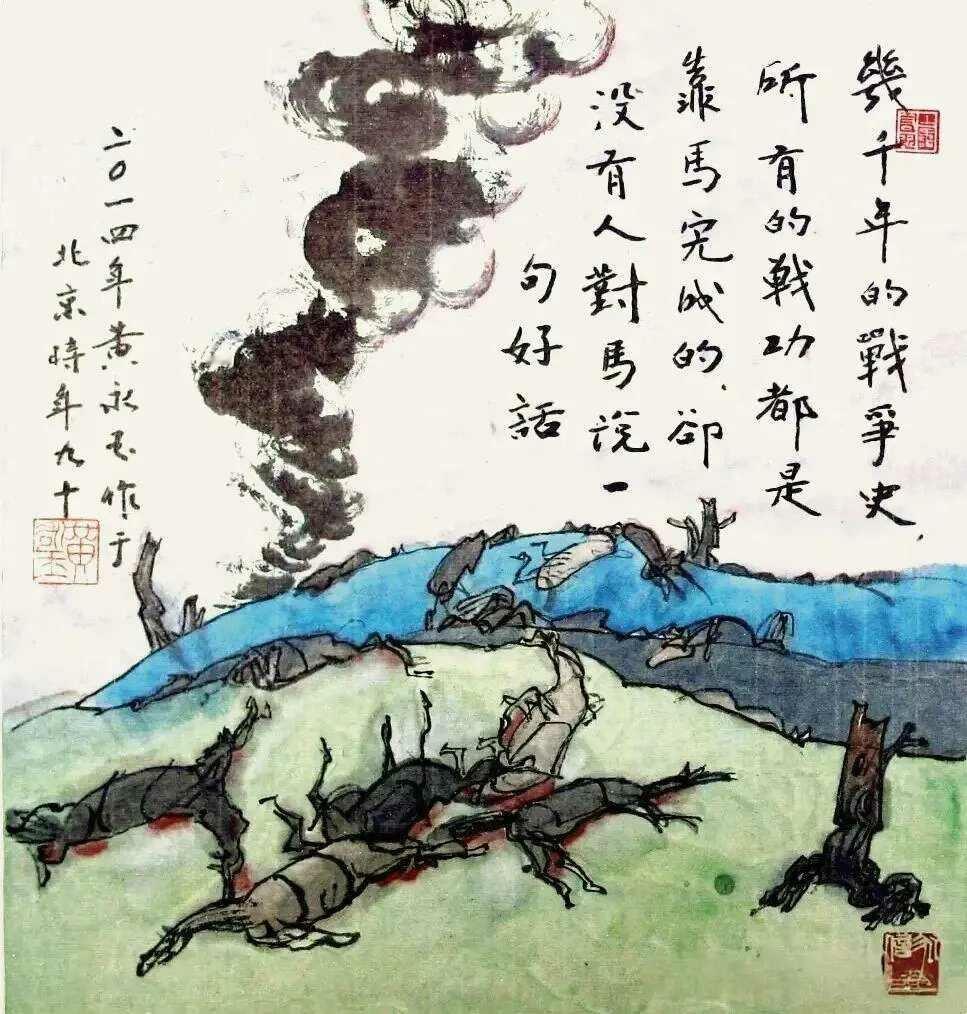 幾千年的戰爭史、
所有的戰功都是
靠馬完成的、卻
没有人對馬說一
句好話
二〇一四年黄永玉作于
北京時年九十